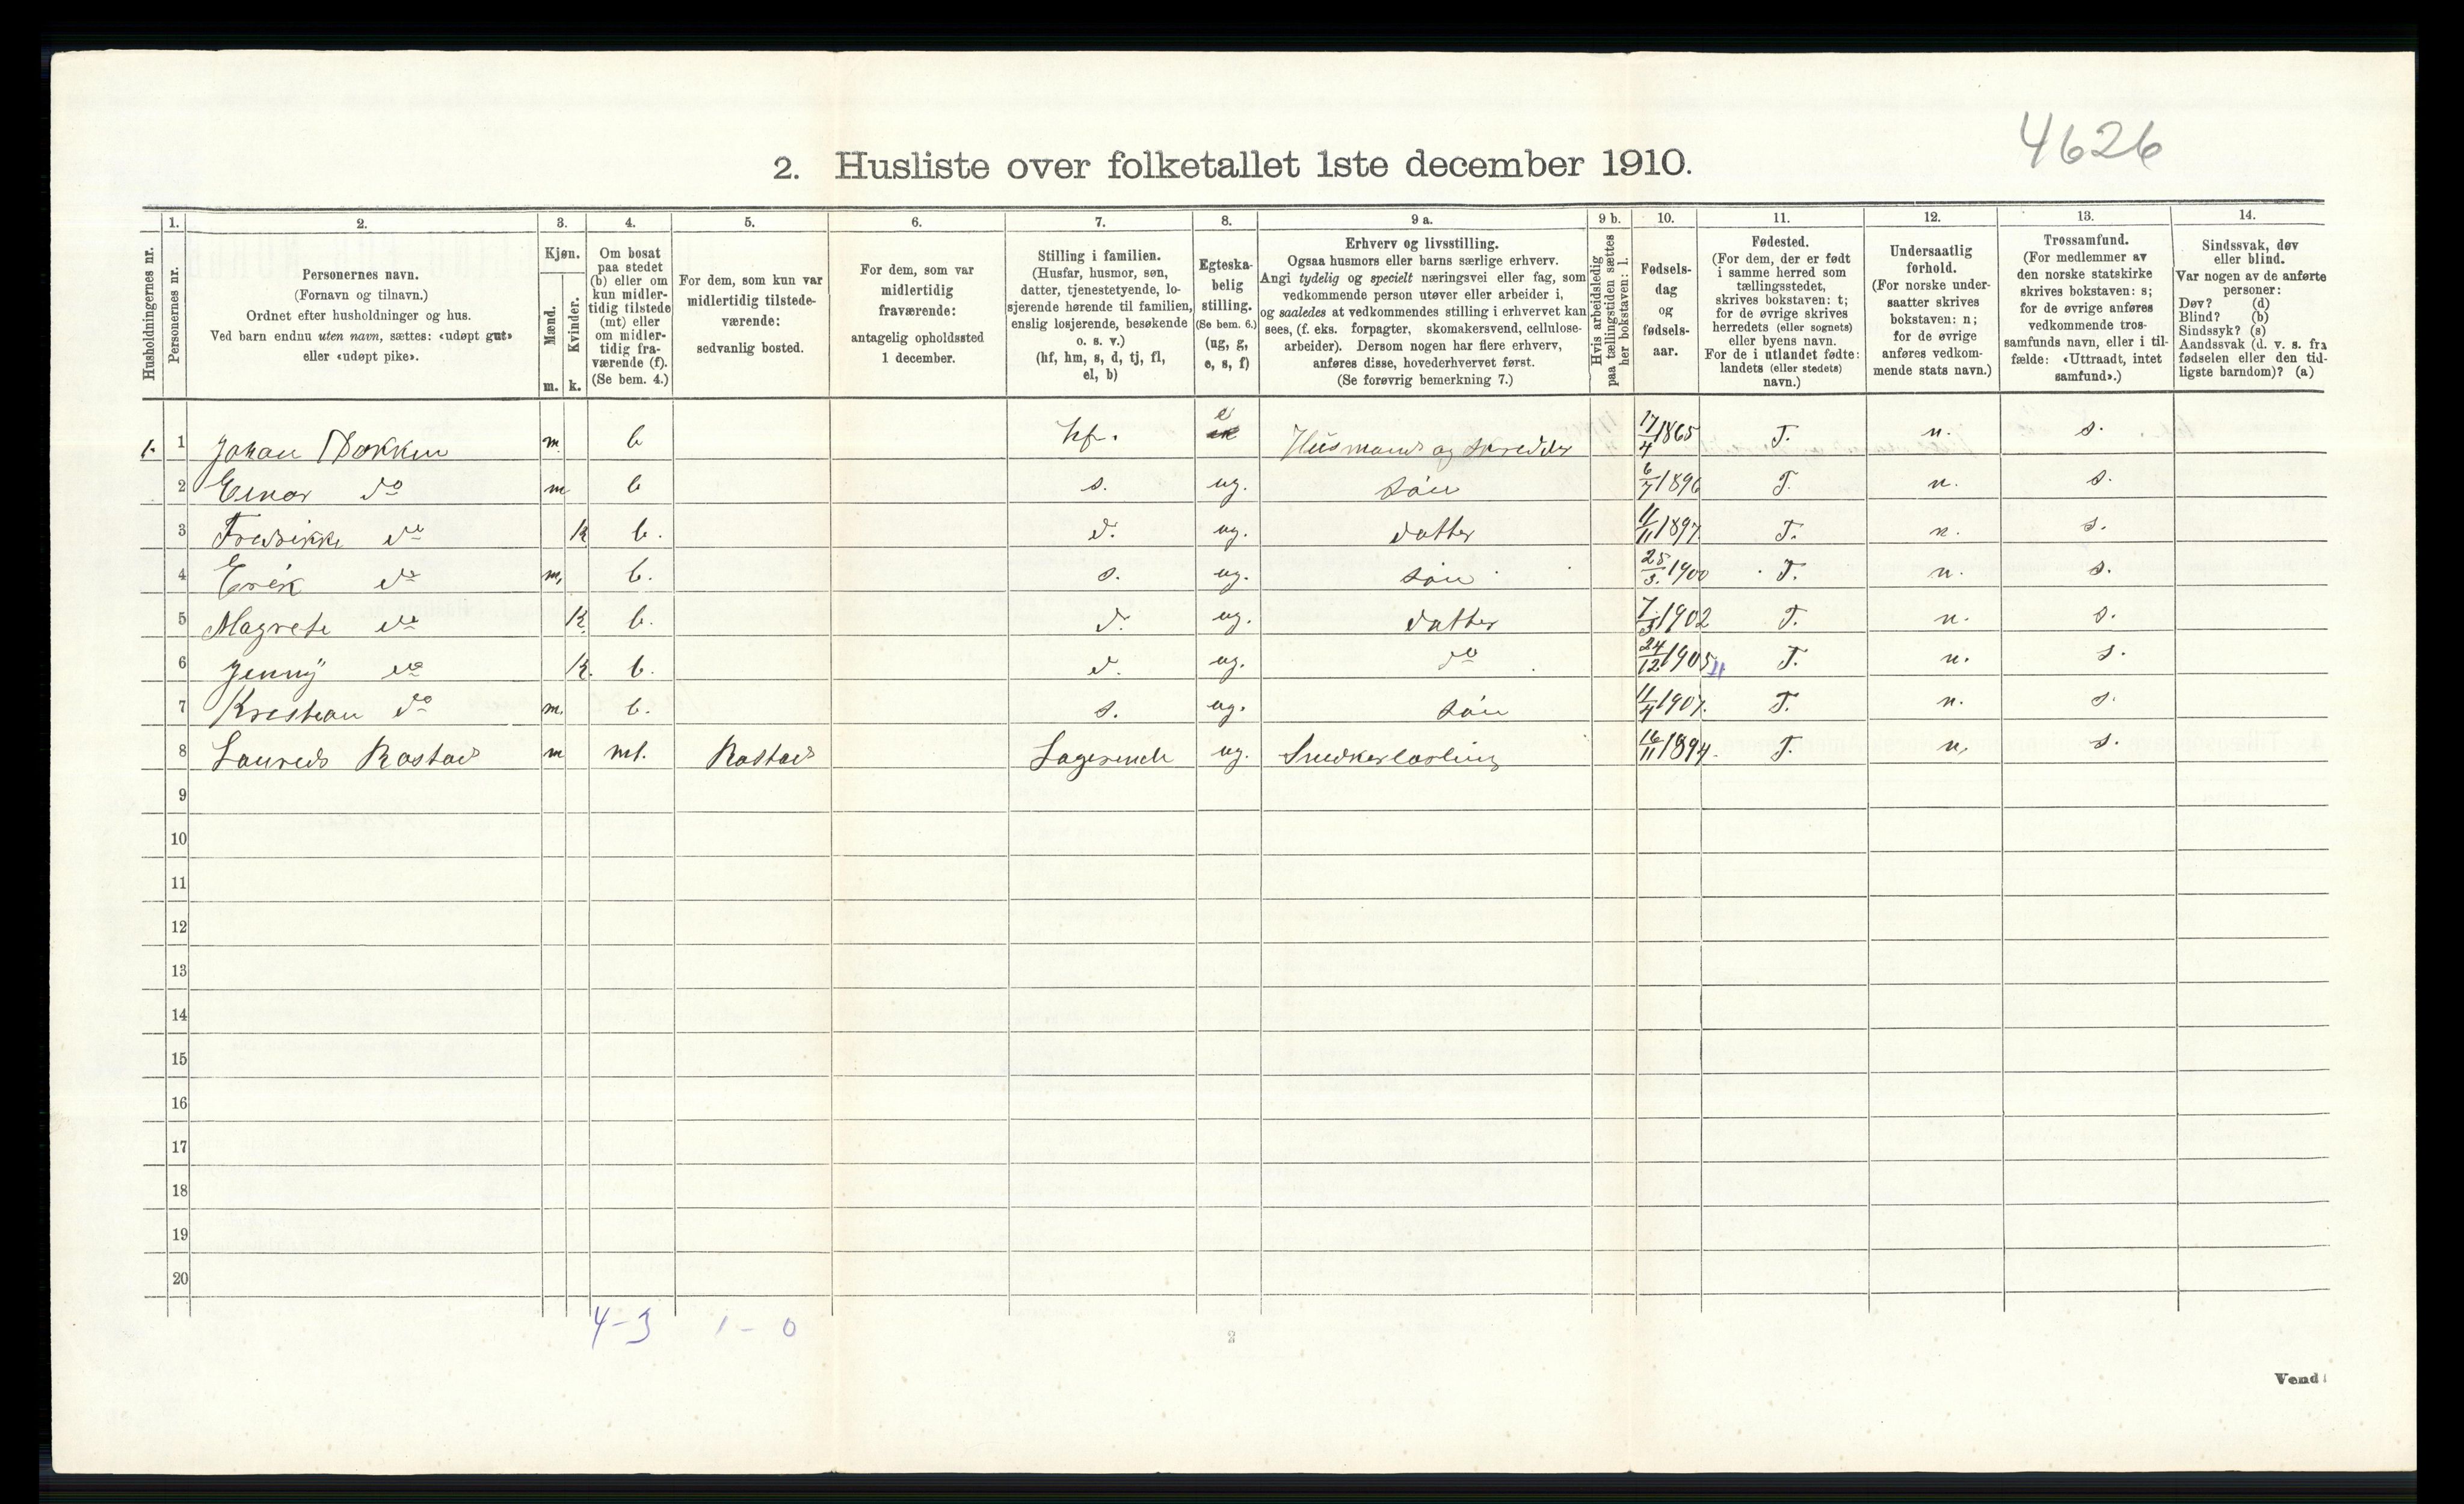 4626
2. Husliste over folketallet 1ste december 1910.
Husholdningernes nr.
1. Personernes nr.
2. Personernes navn.
(Fornavn og tilnavn.)
Ordnet efter husholdninger og hus.
Ved barn endnu uten navn, sættes: «udøpt gut»
eller «udøpt pike».
3. Kjøn.
Mænd. m.
Kvinder. k.
4. Om bosat
paa stedet
(b) eller om
kun midler-
tidig tilstede
(mt) eller
om midler-
tidig fra-
værende (f).
(Se bem. 4.)
5. For dem, som kun var
midlertidig tilstede-
værende:
sedvanlig bosted.
6. For dem, som var
midlertidig
fraværende:
antagelig opholdssted
1 december.
7. Stilling i familien.
(Husfar, husmor, søn,
datter, tjenestetyende, lo-
sjerende hørende til familien,
enslig losjerende, besøkende
o. s. v.)
(hf, hm, s, d, tj, fl,
el, b)
8. Egteska-
belig
stilling.
(Se bem. 6.)
(ug, g,
e, s, f)
9 a. Erhverv og livsstilling.
Ogsaa husmors eller barns særlige erhverv.
Angi tydelig og specielt næringsvei eller fag, som
vedkommende person utøver eller arbeider i,
og saaledes at vedkommendes stilling i erhvervet kan
sees, (f. eks. forpagter, skomakersvend, cellulose-
arbeider). Dersom nogen har flere erhverv,
anføres disse, hovederhvervet først.
(Se forøvrig bemerkning 7.)
9 b. Hvis arbeidsledig
paa tællingstiden sættes
her bokstaven: l.
10. Fødsels-
dag
og
fødsels-
aar.
11. Fødested.
(For dem, der er født
i samme herred som
tællingsstedet,
skrives bokstaven: t;
for de øvrige skrives
herredets (eller sognets)
eller byens navn.
For de i utlandet fødte:
landets (eller stedets)
navn.)
12. Undersaatlig
forhold.
(For norske under-
saatter skrives
bokstaven: n;
for de øvrige
anføres vedkom-
mende stats navn.)
13. Trossamfund.
(For medlemmer av
den norske statskirke
skrives bokstaven: s;
for de øvrige anføres
vedkommende tros-
samfunds navn, eller i til-
fælde: «Uttraadt, intet
samfund».)
14. Sindssvak, døv
eller blind.
Var nogen av de anførte
personer:
Døv? (d)
Blind? (b)
Sindssyk? (s)
Aandssvak (d. v. s. fra
fødselen eller den tid-
ligste barndom)? (a)
1. 1 Johan Bakken m b hf. e Husmand og skredder 17/4 1865 T. n. s.
2 Einar do m b s. ug. søn 6/7 1896 T. n. s.
3 Fredrikke do k b. d. ug. datter 11/11 1897 T. n. s.
4 Erik do m. b. s. ug. søn 25/3. 1900 T. n. s.
5 Magrete do k. b. d. ug. datter 7/3 1902 T. n. s.
6 Jenny do k. b. d. ug. do 24/12 1905 T. n. s.
7 Kristian do m. b. s. ug. søn 11/4 1907. T. n. s.
8 Laureds Rostad m mt. Rostad Logerende ug. Snedkerlærling 16/11 1894. T. n. s.
9
10
11
12
13
14
15
16
17
18
19
20
4-3 1-0
2
Vend